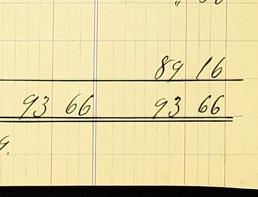 89 16
93 66 93 66